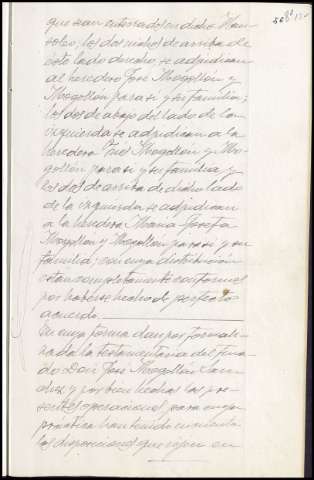 que sean enterrados en dicho Mau-
soleo; los dos nichos de arriba de
este lado derecho, se adjudican
al heredero José Mogollón y
Mogollón para si y su familia;
los dos de abajo del lado de la
izquierda se adjudican a la
heredera Mogollón y Mo-
gollón para si y su familia y
los dos de arriba de dicho lado
de la izquierda se adjudican
a la heredera Maria Josefa
Mogollón y Mogollón para si y su
familia; con cuya distribución
estan completamente conformes
por haberse hecho de perfecto
acuerdo.
En cuya forma dan por formali-
zada la testamentaria del fina-
do Don José Mogollón
y por bien hechas las pre-
sentes operaciones, para cuya
practica han tenido en cuenta
las disposiciones que rigen en